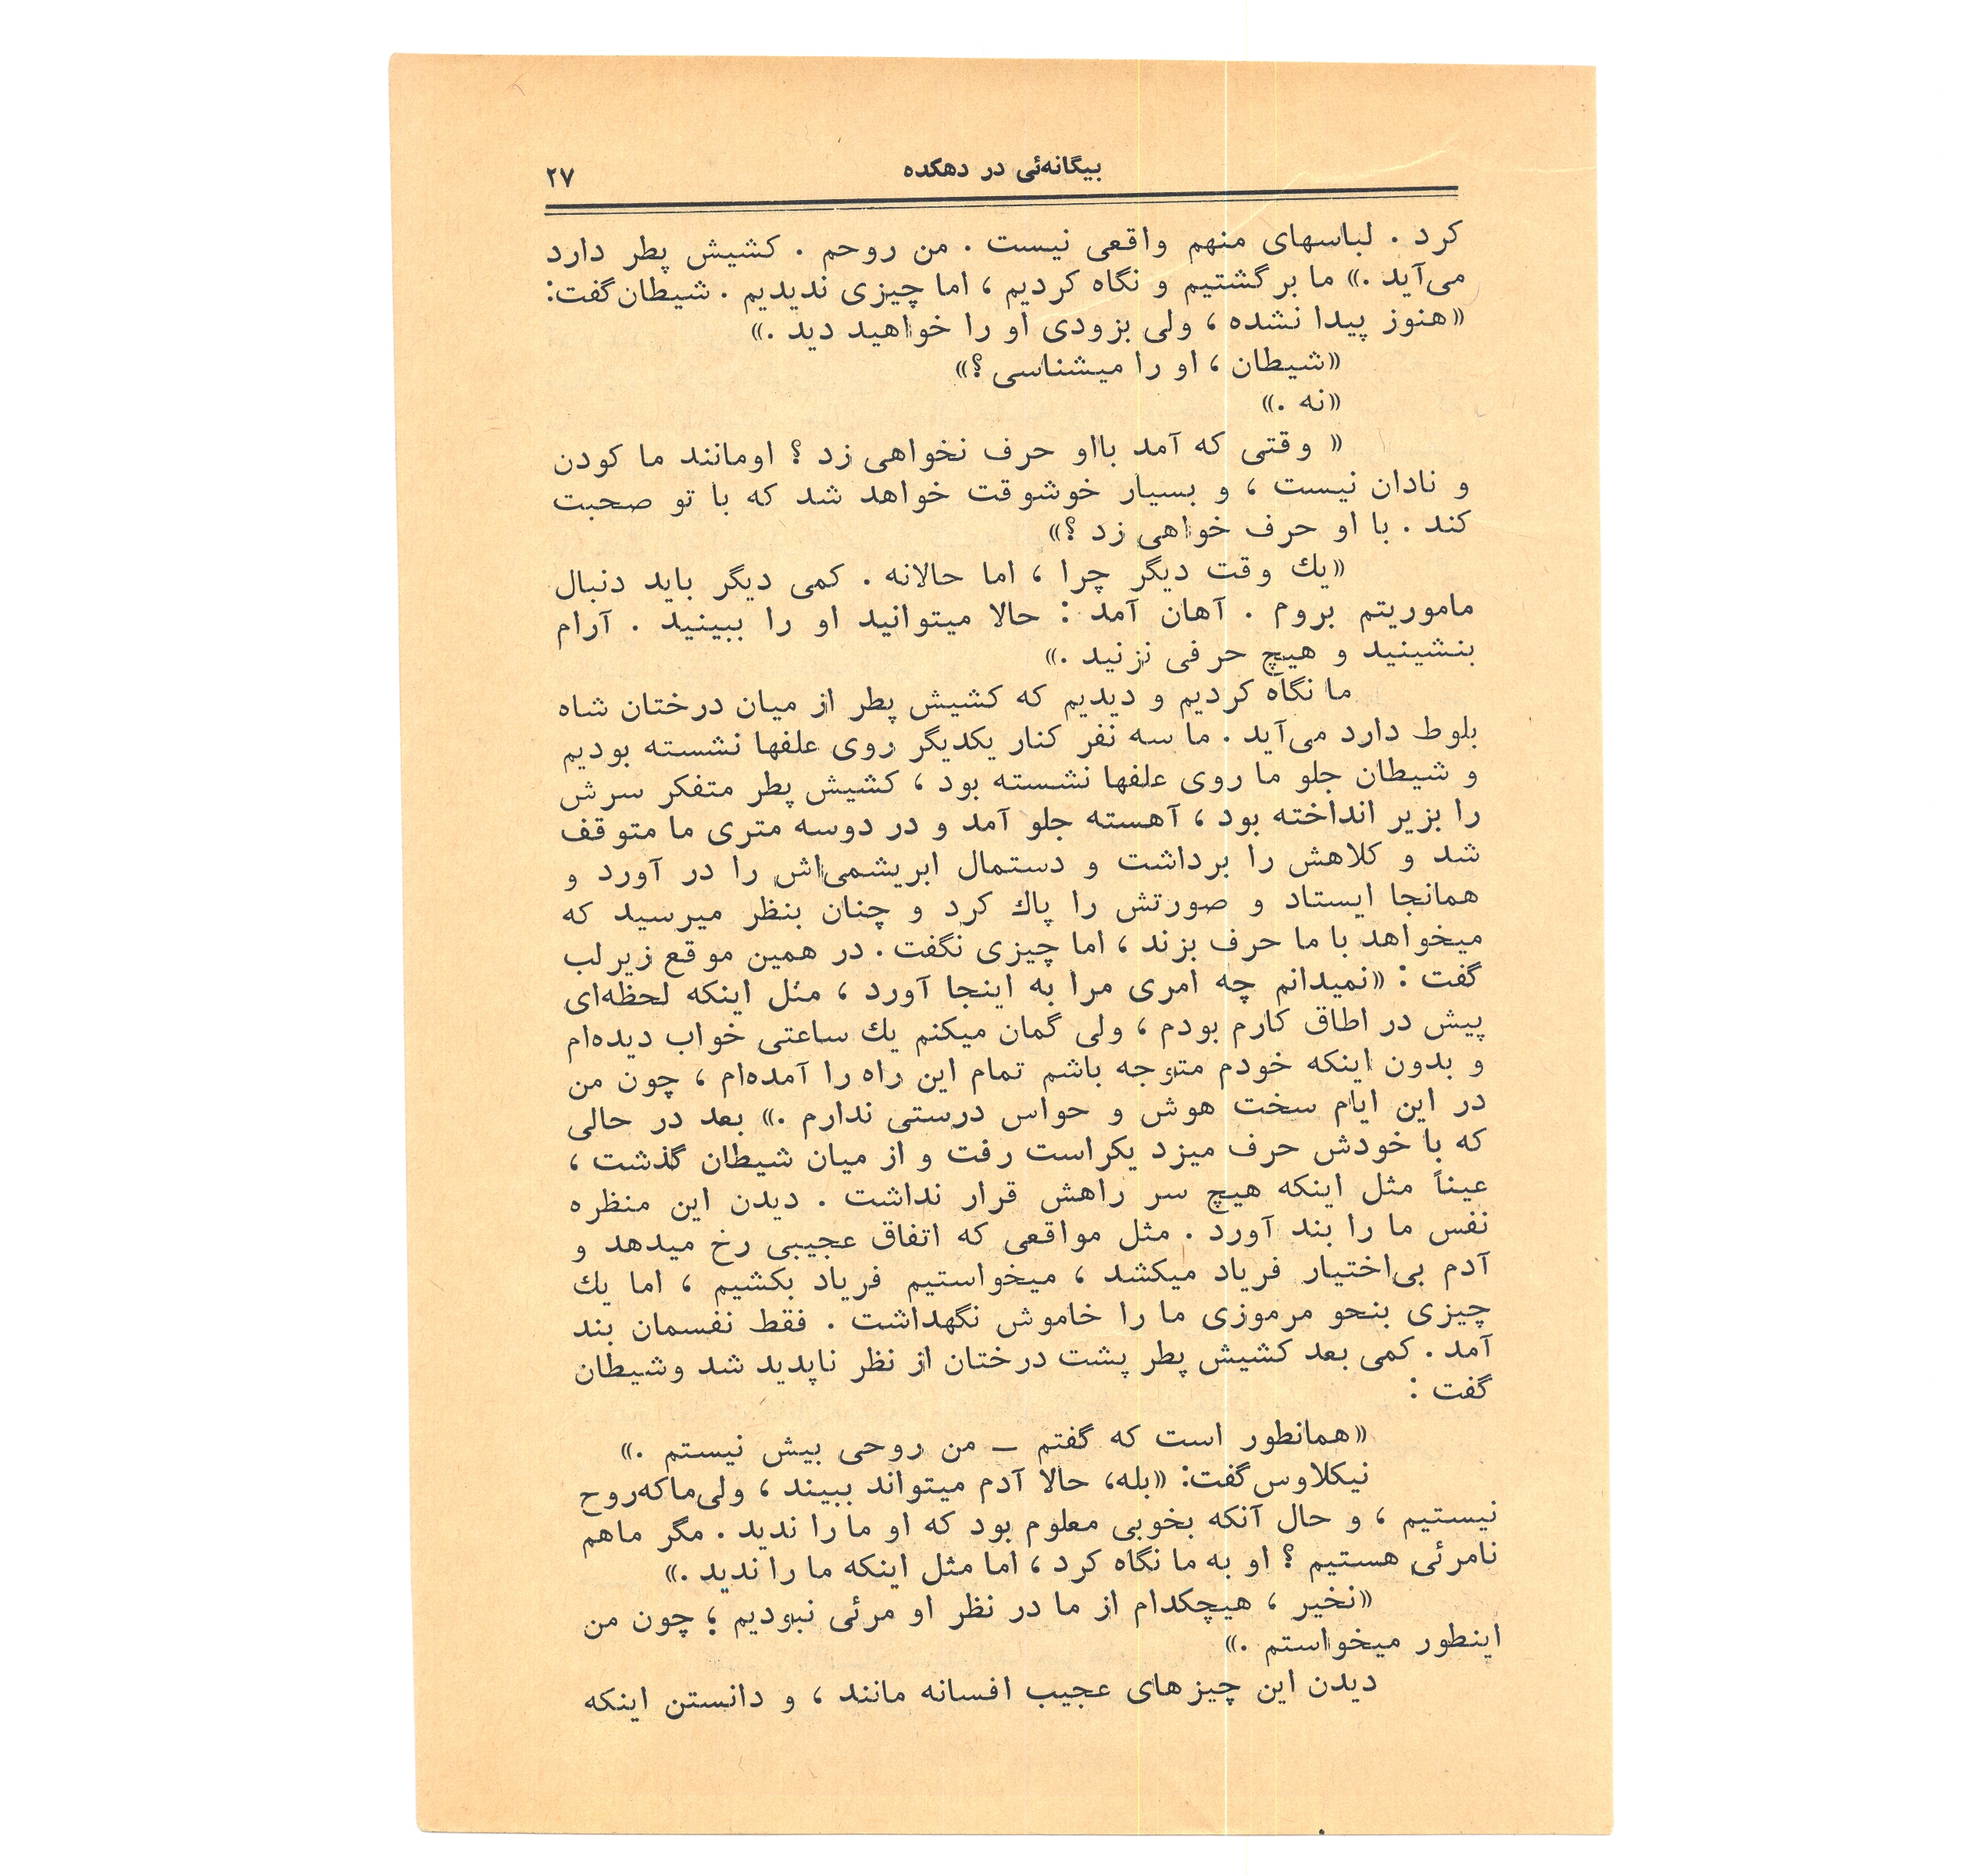 بیگانه‌ئی در دهکده
۲۷
کرد . لباسهای منهم واقعی نیست . من روحم . کشیش پطر دارد
می‌آید .» ما برگشتیم و نگاه کردیم ، اما چیزی ندیدیم . شیطان گفت:
«هنوز پیدا نشده ، ولی بزودی او را خواهید دید .»
«شیطان ، او را میشناسی ؟»
«نه .»
« وقتی که آمد بااو حرف نخواهی زد ؟ اومانند ما کودن
و نادان نیست ، و بسیار خوشوقت خواهد شد که با تو صحبت
کند . با او حرف خواهی زد ؟»
«یك وقت دیگر چرا ، اما حالانه . کمی دیگر باید دنبال
ماموریتم بروم . آهان آمد : حالا میتوانید او را ببینید . آرام
بنشینید و هیچ حرفی نزنید .»
ما نگاه کردیم و دیدیم که کشیش پطر از میان درختان شاه
بلوط دارد می‌آید . ما سه نفر کنار یکدیگر روی علفها نشسته بودیم
و شیطان جلو ما روی علفها نشسته بود ، کشیش پطر متفکر سرش
را بزیر انداخته بود ، آهسته جلو آمد و در دوسه متری ما متوقف
شد و کلاهش را برداشت و دستمال ابریشمی‌اش را در آورد و
همانجا ایستاد و صورتش را پاك کرد و چنان بنظر میرسید که
میخواهد با ما حرف بزند ، اما چیزی نگفت . در همین موقع زیرلب
گفت : «نمیدانم چه امری مرا به اینجا آورد ، مثل اینکه لحظه‌ای
پیش در اطاق کارم بودم ، ولی گمان میکنم یك ساعتی خواب دیده‌ام
و بدون اینکه خودم متوجه باشم تمام این راه را آمده‌ام ، چون من
در این ایام سخت هوش و حواس درستی ندارم .» بعد در حالی
که با خودش حرف میزد یکراست رفت و از میان شیطان گذشت ،
عیناً مثل اینکه هیچ سر راهش قرار نداشت . دیدن این منظره
نفس ما را بند آورد . مثل مواقعی که اتفاق عجیبی رخ میدهد و
آدم بی‌اختیار فریاد میکشد ، میخواستیم فریاد بکشیم ، اما یك
چیزی بنحو مرموزی ما را خاموش نگهداشت . فقط نفسمان بند
آمد . کمی بعد کشیش پطر پشت درختان از نظر ناپدید شد وشیطان
گفت :
«همانطور است که گفتم – من روحی بیش نیستم .»
نیکلاوس گفت: «بله، حالا آدم میتواند ببیند ، ولی‌ماکه‌روح
نیستیم ، و حال آنکه بخوبی معلوم بود که او ما را ندید . مگر ماهم
نامرئی هستیم ؟ او به ما نگاه کرد ، اما مثل اینکه ما را ندید .»
«نخیر ، هیچکدام از ما در نظر او مرئی نبودیم ؛ چون من
اینطور میخواستم .»
دیدن این چیزهای عجیب افسانه مانند ، و دانستن اینکه